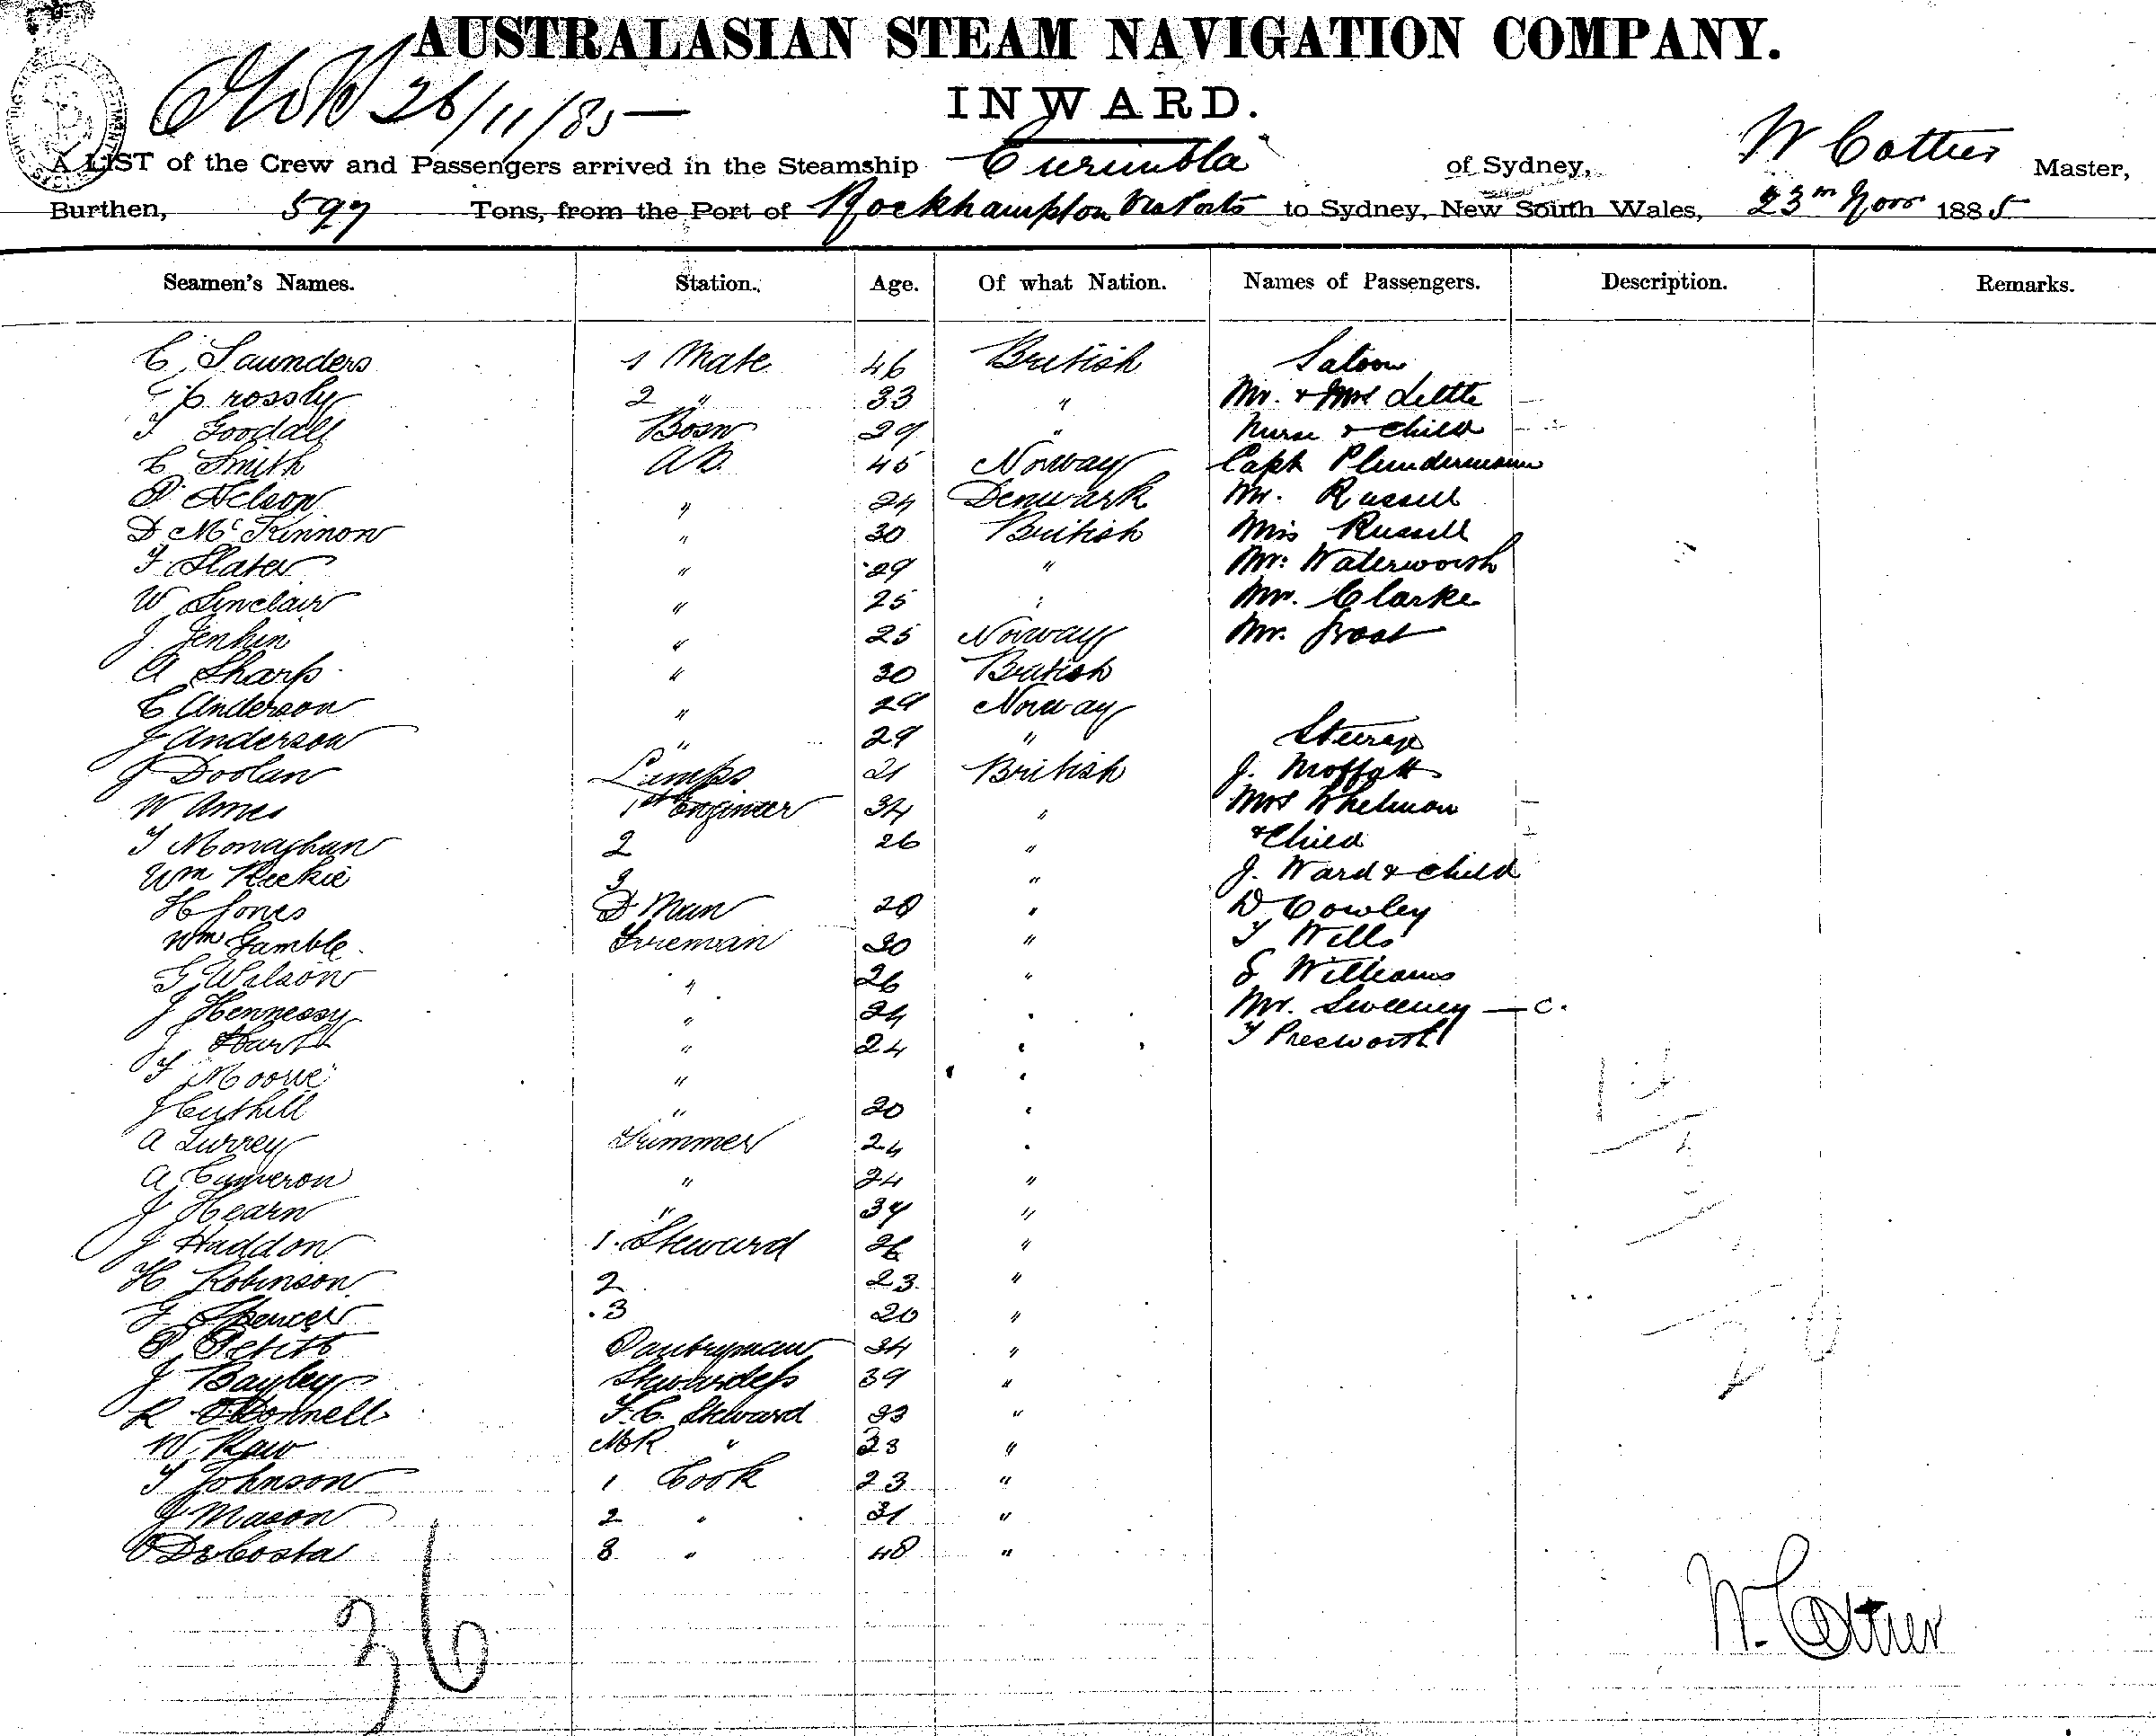 AUSTRALASIAN STEAM NAVIGATION COMPANY.
26/11/85
INWARD.
A LIST of the Crew and Passengers arrived in the Steamship Corumbla of Sydney, W Cottier Master,
Burthen, 597 Tons, from the Port of Rockhampton Via Ports to Sydney, New South Wales, 23rd Novr 1885
Seamen's Names. Station. Age. Of what Nation. Names of Passengers. Description. Remarks.
C Saunders 1 Mate 46 British Saloon
C Crossly 2 " 33 " Mr. & Mrs Little
T Goodall Bosn 29 " Nurse & Child
C Smith AB. 45 Norway Capt
P Nelson " 24 Denmark Mr. Russell
D McKinnon " 30 British Miss Russell
F Slater " 29 " Mr. Waterworth
W Sinclair " 25 " Mr. Clarke
J Jenkin " 25 Norway Mr. Frost
A Sharp " 30 British
C Anderson " 29 Norway
J Anderson " 29 " Steerage
J Doolan Lamps 21 British J. Moffatt
W Ames 1st Engineer 34 " Mrs Whelman
T Monaghan 2 26 " & Child
Wm Reekie 3 " J. Ward & child
H Jones D Man 28 " D Cowley
Wm Gamble Fireman 30 " T Wills
G Wilson " 26 " S Williams
J Hennessy " 24 " Mr. Sweeney — C.
J Hart " 24 " T Presworth
T Moore " "
J Cuthill " 20 "
A Turrey Trimmer 24 "
A Cameron " 24 "
J Hearn " 34 "
J Haddon 1. Steward 26 "
H Robinson 2 23 "
G Spencer 3 20 "
P Petitt Pantryman 34 "
J Bayley Stewardess 39 "
R O'Donnell F.C. Steward 33 "
W. Raw M R " 23 "
T Johnson 1 Cook 23 "
J Mason 2 " 31 "
DeCosta 3 " 48 "
36
W. Cottier